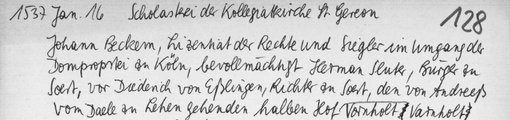 1537 Jan. 16 Scholasterei der Kollegiatkirche St. Gereon
128
Johann Beckem, Lizentiat der Rechte und Siegler im Umgang der
Dompropstei zu Köln, bevollmächtigt Herman Sluter, Bürger zu
Soest, vor Diederich von Eßlingen, Richter zu Soest, den von Andreeß
vom Daele zu Lehen gehenden halben Hof Vornholt Varnholt